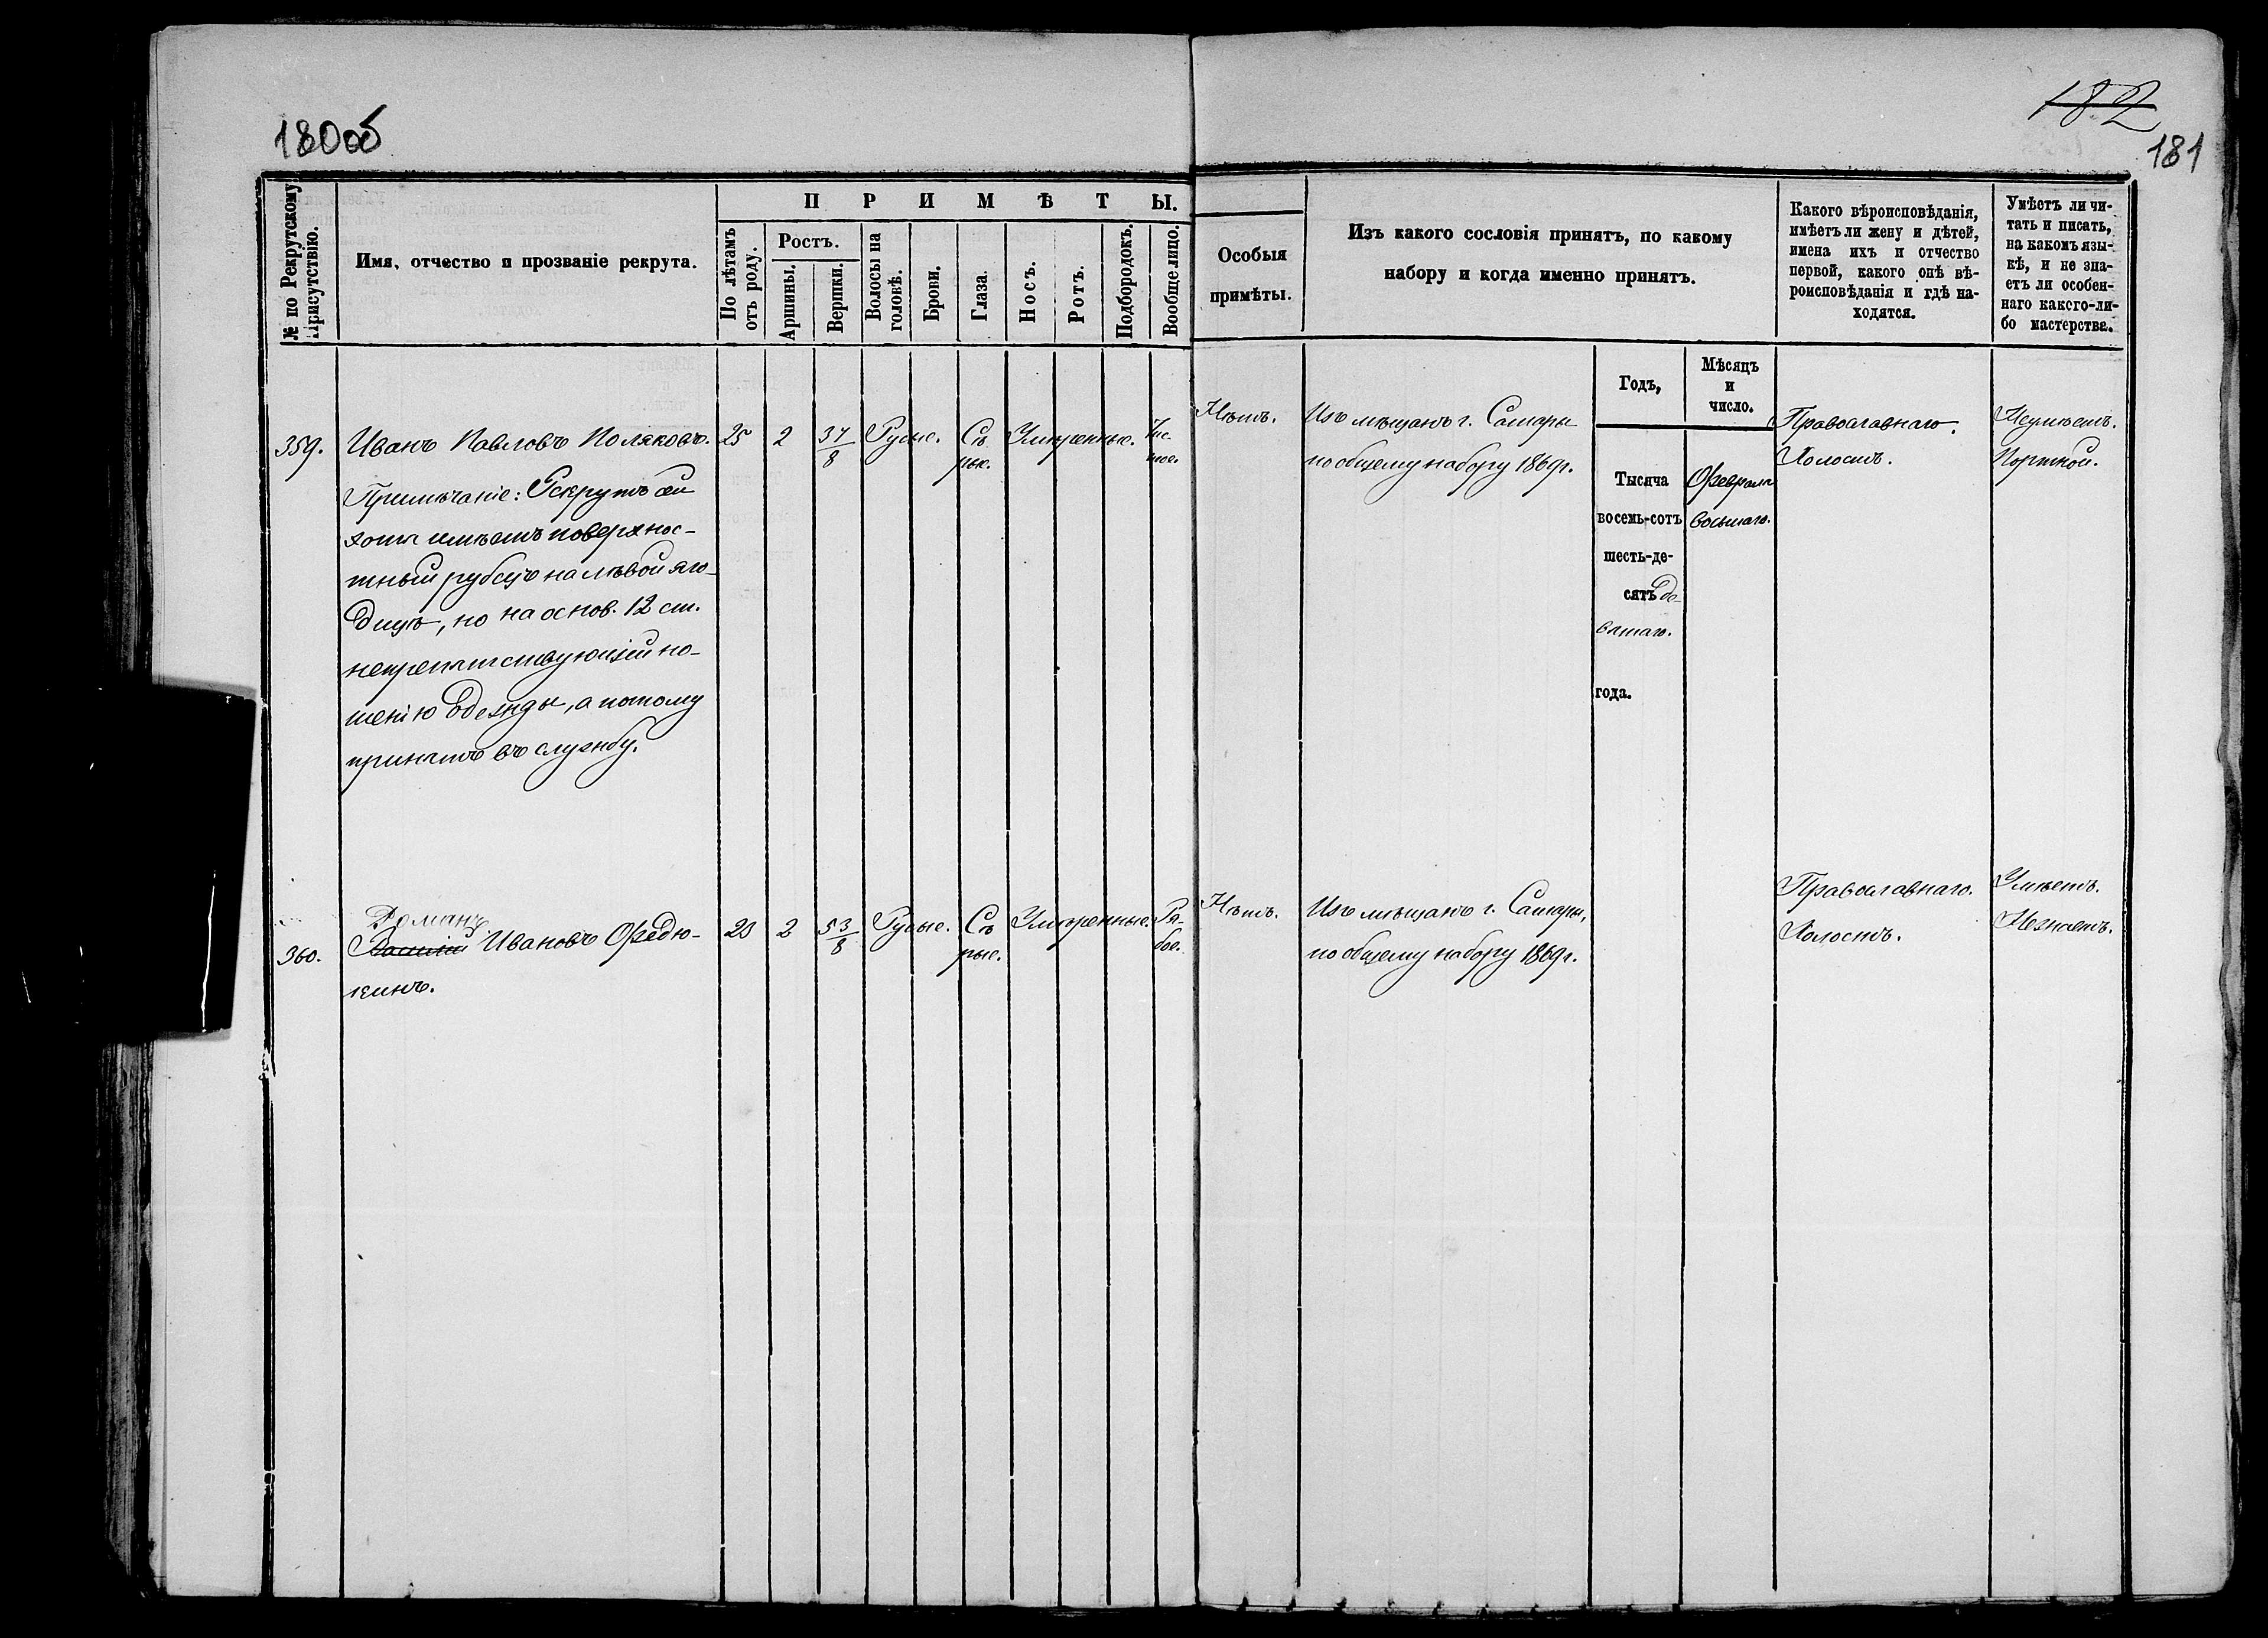 180об
182
181
№ по Рекрутскому Присутствію.
Имя, отчество и прозваніе рекрута.
ПРИМѢТЫ.
По лѣтамъ отъ роду.
Ростъ.
Аршины.
Вершки.
Волосы на головѣ.
Брови.
Глаза.
Носъ.
Ротъ.
Подбородокъ.
Вообще лицо.
Особыя
примѣты.
Изъ какого сословія принятъ, по какому
набору и когда именно принятъ.
Какого вѣроисповѣданія,
имѣетъ ли жену и дѣтей,
имена ихъ и отчество
первой, какого онѣ вѣ-
роисповѣданія и гдѣ на-
ходятся.
Умѣетъ ли чи-
тать и писать,
на какомъ язы-
кѣ, и не зна-
етъ ли особен-
наго какого-ли-
бо мастерства.
Годъ,
Мѣсяцъ
и
число.
359. Иванъ Павловъ Поляковъ. 25 2 3 7/8 Русые. Сѣ Умѣренные. Чис
рые. тое.
Примѣчаніе: Рекрутъ сей
хотя имѣетъ поверхнос-
тный рубецъ на лѣвой яго-
дицѣ, но на основ. 12 ст.
непрепятствующій но-
шенію одежды, а потому
принятъ въ службу.
Нѣтъ. Изъ мѣщанъ г. Самары
по общему набору 1869 г.
Тысяча
восемь-сотъ
шесть-де-
сятъ де-
вятаго.
года.
Февраля
восьмаго.
Православнаго.
Холостъ.
Неумѣетъ.
Портной.
Романъ
360. Василій Ивановъ Федю- 23 2 5 3/8 Русые. Сѣ Умѣренные. Ря-
кинъ. рые. бое.
Нѣтъ. Изъ мѣщанъ г. Самары,
по общему набору 1869 г.
Православнаго.
Холостъ.
Умѣетъ.
Незнаетъ.